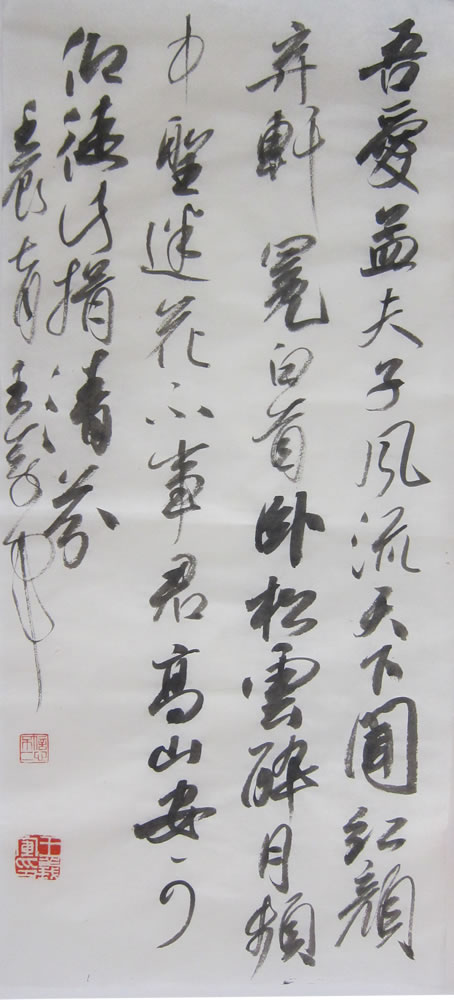 吾愛孟夫子風流天下聞紅顏
弃軒冕白首卧松雲醉月頻
中聖迷花不事君高山安可
仰徒此揖清芬
壬辰七月王